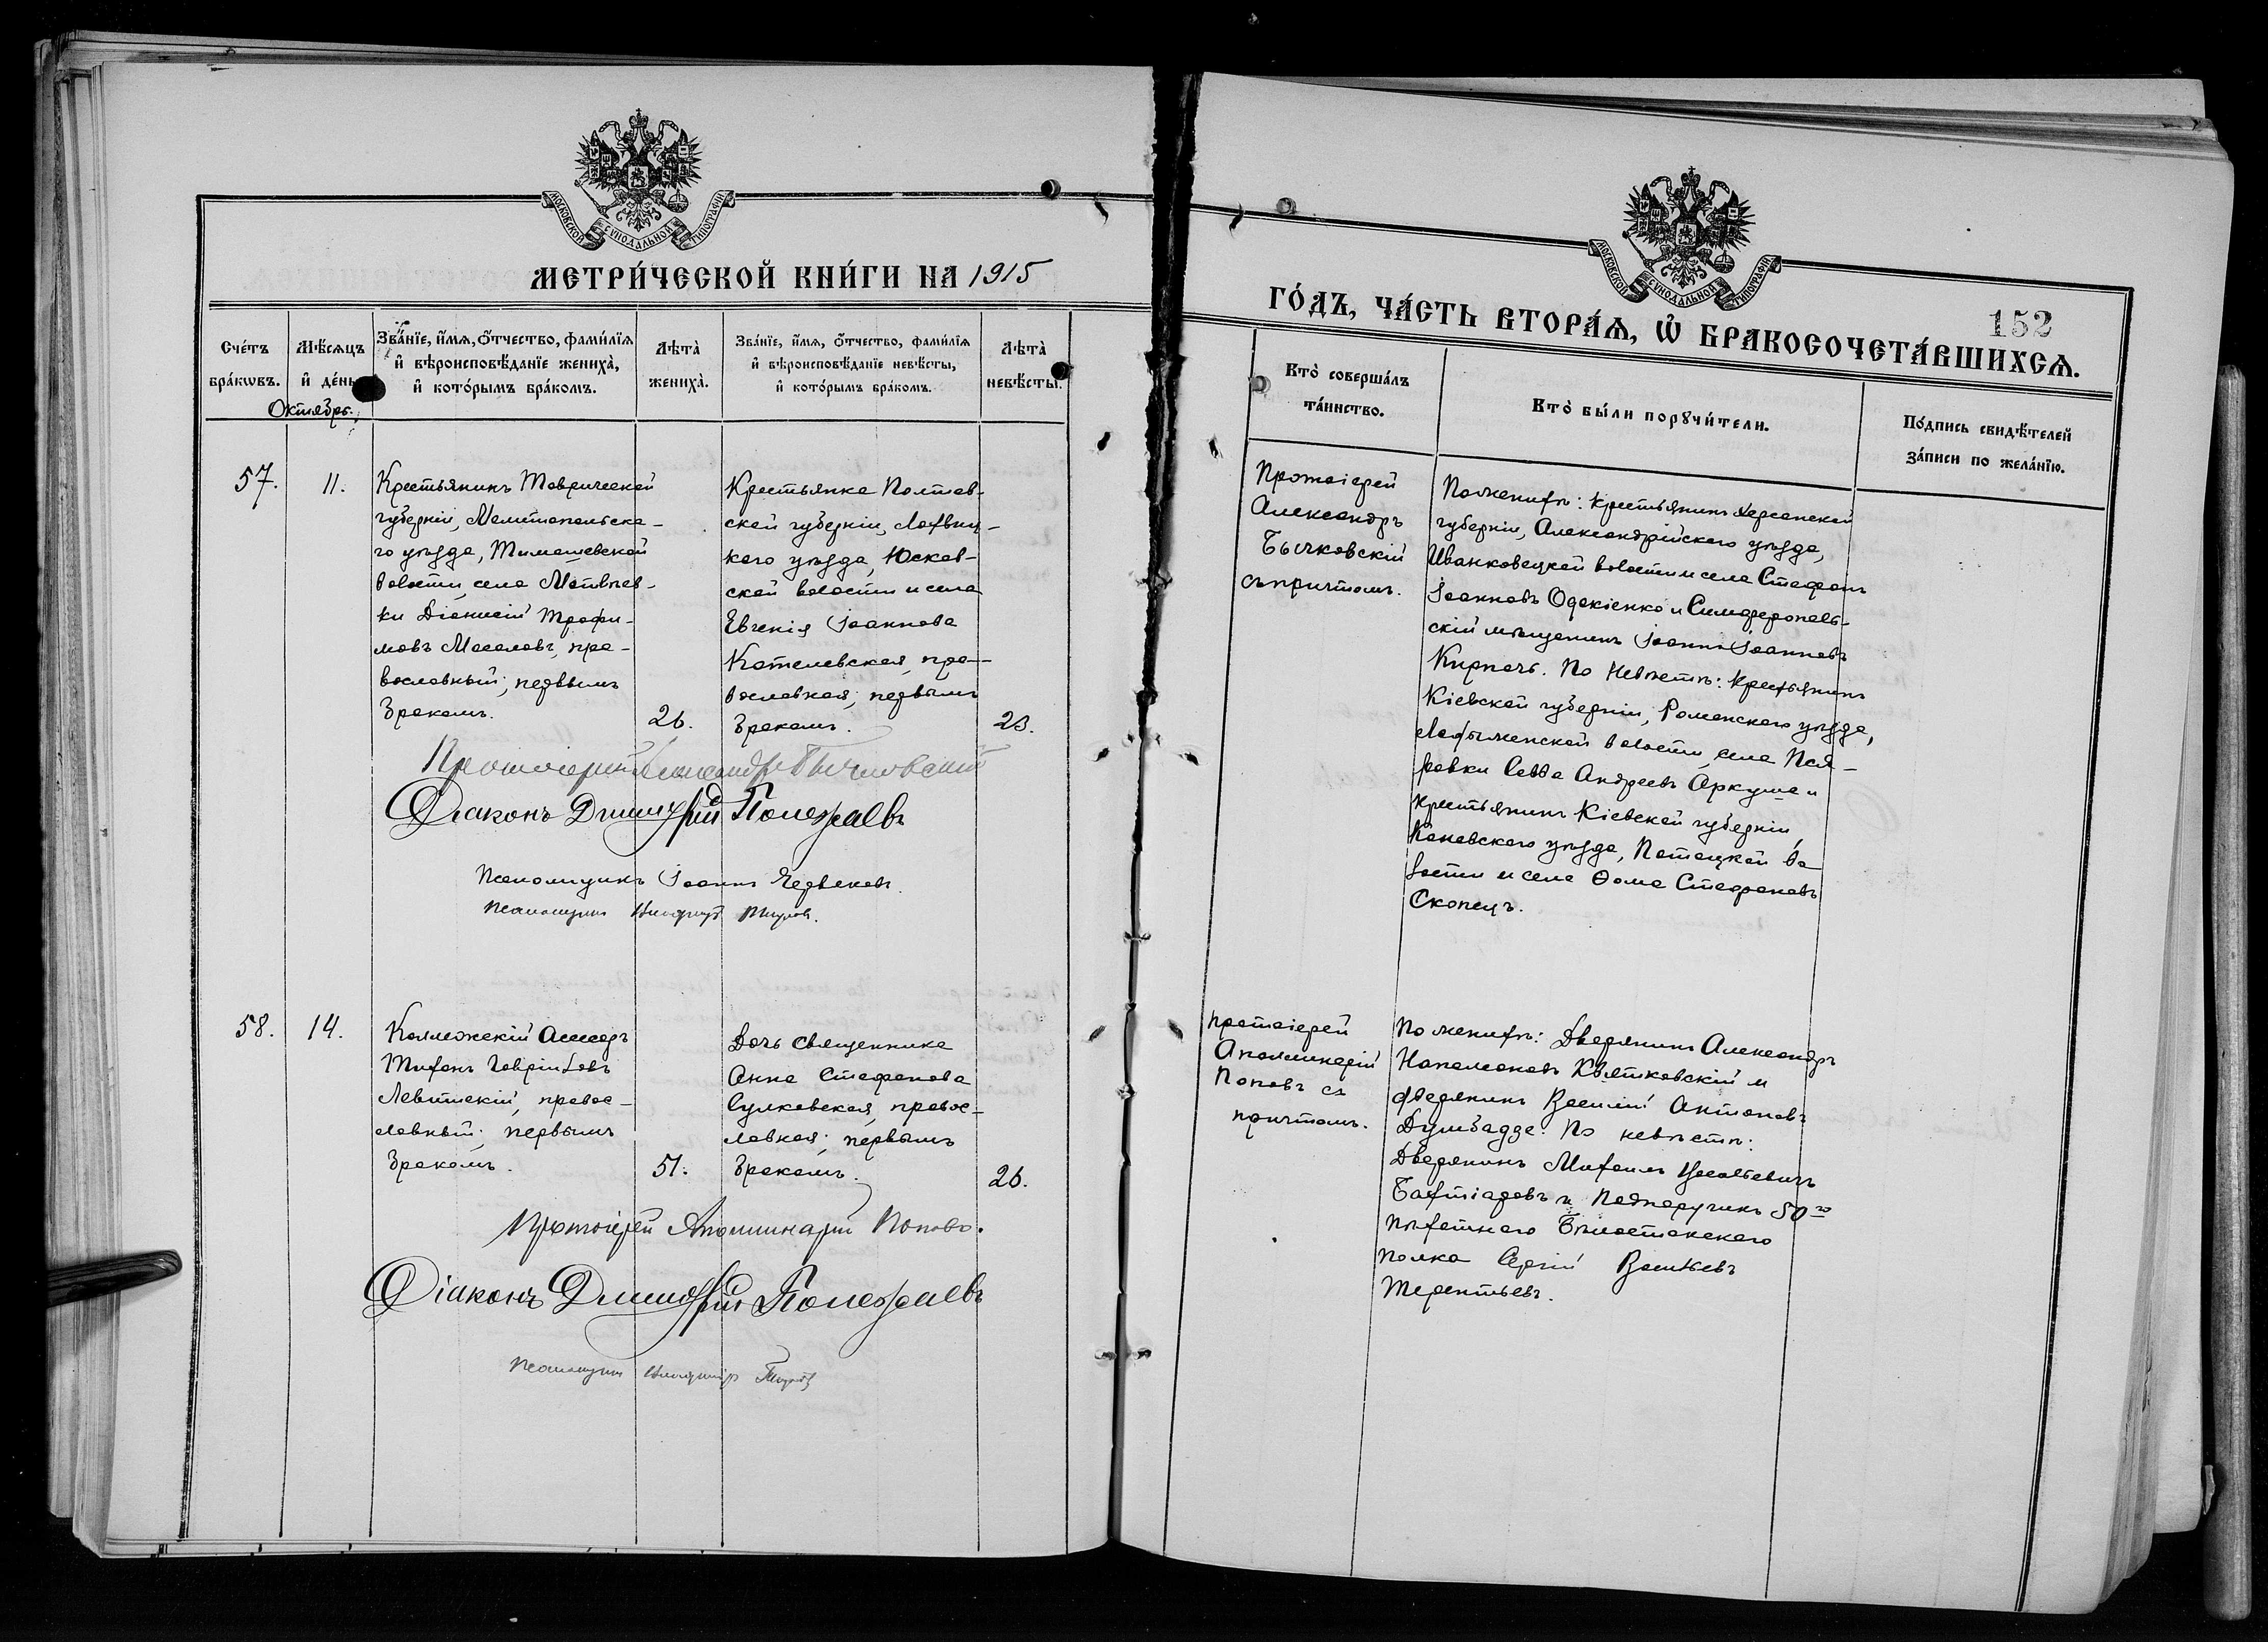 МОСКОВСКОЙ СѴНОДАЛЬНОЙ ТИПОГРАФІИ
МЕТРИ́ЧЕСКОЙ КНИ́ГИ НА 1915
Сче́тъ бра́кѡвъ.
Мѣ́сяцъ и де́нь
Зва́нїе, и́мя, о́тчество, фами́лїя и вѣроисповѣ́данїе жениха̀, и кото́рымъ бра́комъ.
Лѣта̀ жениха̀.
Зва́нїе, и́мя, о́тчество, фами́лїя и вѣроисповѣ́данїе невѣ́сты, и кото́рымъ бра́комъ.
Лѣта̀ невѣ́сты.
Октябрь.
57.
11.
Крестьянинъ Таврической
губерніи, Мелитопольска-
го уѣзда, Тимашевской
волости, села Матвѣев-
ки Діонисій Трофи-
мовъ Масаловъ, пра-
вославный; первымъ
бракомъ.
26.
Крестьянка Полтав-
ской губерніи, Лохвиц-
кого уѣзда, Юсков-
ской волости и села
Евгенія Іоаннова
Котелевская, пра-
вославная; первымъ
бракомъ.
23.
Протоіерей Александръ Бычковскій
Діаконъ Димитрій Полежаевъ
Псаломщикъ Іоаннъ Червяковъ.
Псаломщикъ
58.
14.
Коллежскій Ассесоръ
Тихонъ Гавріиловъ
Левитскій, правос-
лавный; первымъ
бракомъ.
51.
Дочь священника
Анна Стефанова
Сулковская, правос-
лавная; первымъ
бракомъ.
26.
Протоіерей Аполлинарій Поповъ.
Діаконъ Димитрій Полежаевъ
Псаломщикъ
МОСКОВСКОЙ СѴНОДАЛЬНОЙ ТИПОГРАФІИ
ГО́ДЪ, ЧА́СТЬ ВТОРА́Я, Ѡ БРАКОСОЧЕТА́ВШИХСЯ.
152
Кто̀ соверша́лъ та́инство.
Кто̀ бы́ли порꙋчи́тели.
По́дпись свидѣ́телей за́писи по жела́нїю.
Протоіерей
Александръ
Бычковскій
съ причтомъ.
По женихѣ: крестьянинъ Херсонской
губерніи, Александрійского уѣзда,
Иванковецкой волости и села Стефанъ
Іоанновъ Одокіенко и Симферополь-
скій мѣщанинъ Іоаннъ Іоанновъ
Кирпачъ. По Невѣстѣ: крестьянинъ
Кіевской губерніи, Роменского уѣзда,
волости, села Пся-
ровки Савва Андреевъ Аркуша и
крестьянинъ Кіевской губерніи,
Каневского уѣзда, Потоцкой во
лости и села Ѳома Стефановъ
Скопецъ.
Протоіерей
Аполлинарій
Поповъ съ
причтомъ.
По женихѣ: Дворянинъ Александръ
Наполеоновъ Квятковскій и
дворянинъ Василій Антоновъ
Думбадзе. По невѣстѣ:
Дворянинъ Михаилъ
Бахтіаровъ и Подпоручикъ 50го
пѣхотнаго Бѣлостокского
полка Сергій Васильевъ
Терентьевъ.